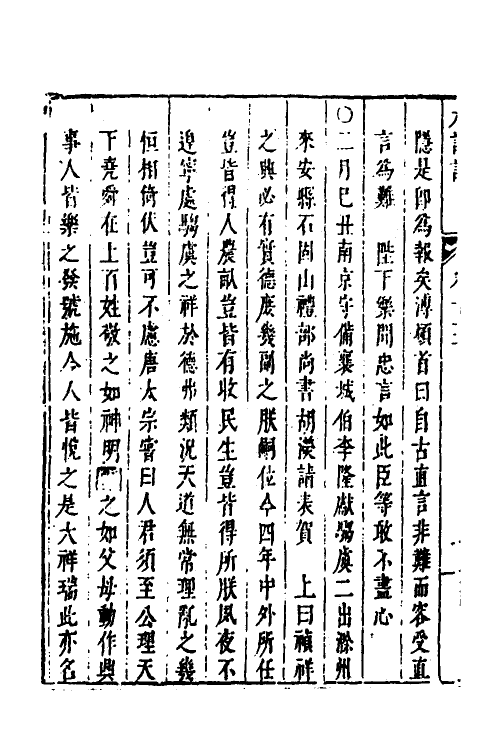 隱是卽為報矣溥頓首曰自古直言非難而容受直
言為難　陛下樂聞忠言如此臣等敢不盡心
○二月己丑南京守備襄城伯李隆獻騶虞二出滁州
來安縣石固山禮部尚書胡濙請表賀　上曰禎祥
之興必有實德庶幾副之朕嗣位今四年中外所任
豈皆得人農畝豈皆有收民生豈皆得所朕夙夜不
遑寧處騶虞之祥於德弗類況天道無常理亂之幾
恒相倚伏豈可不慮唐太宗嘗曰人君須至公理天
下堯舜在上百姓敬之如神明之如父母動作興
事人皆樂之發號施令人皆悅之是大祥瑞此亦名